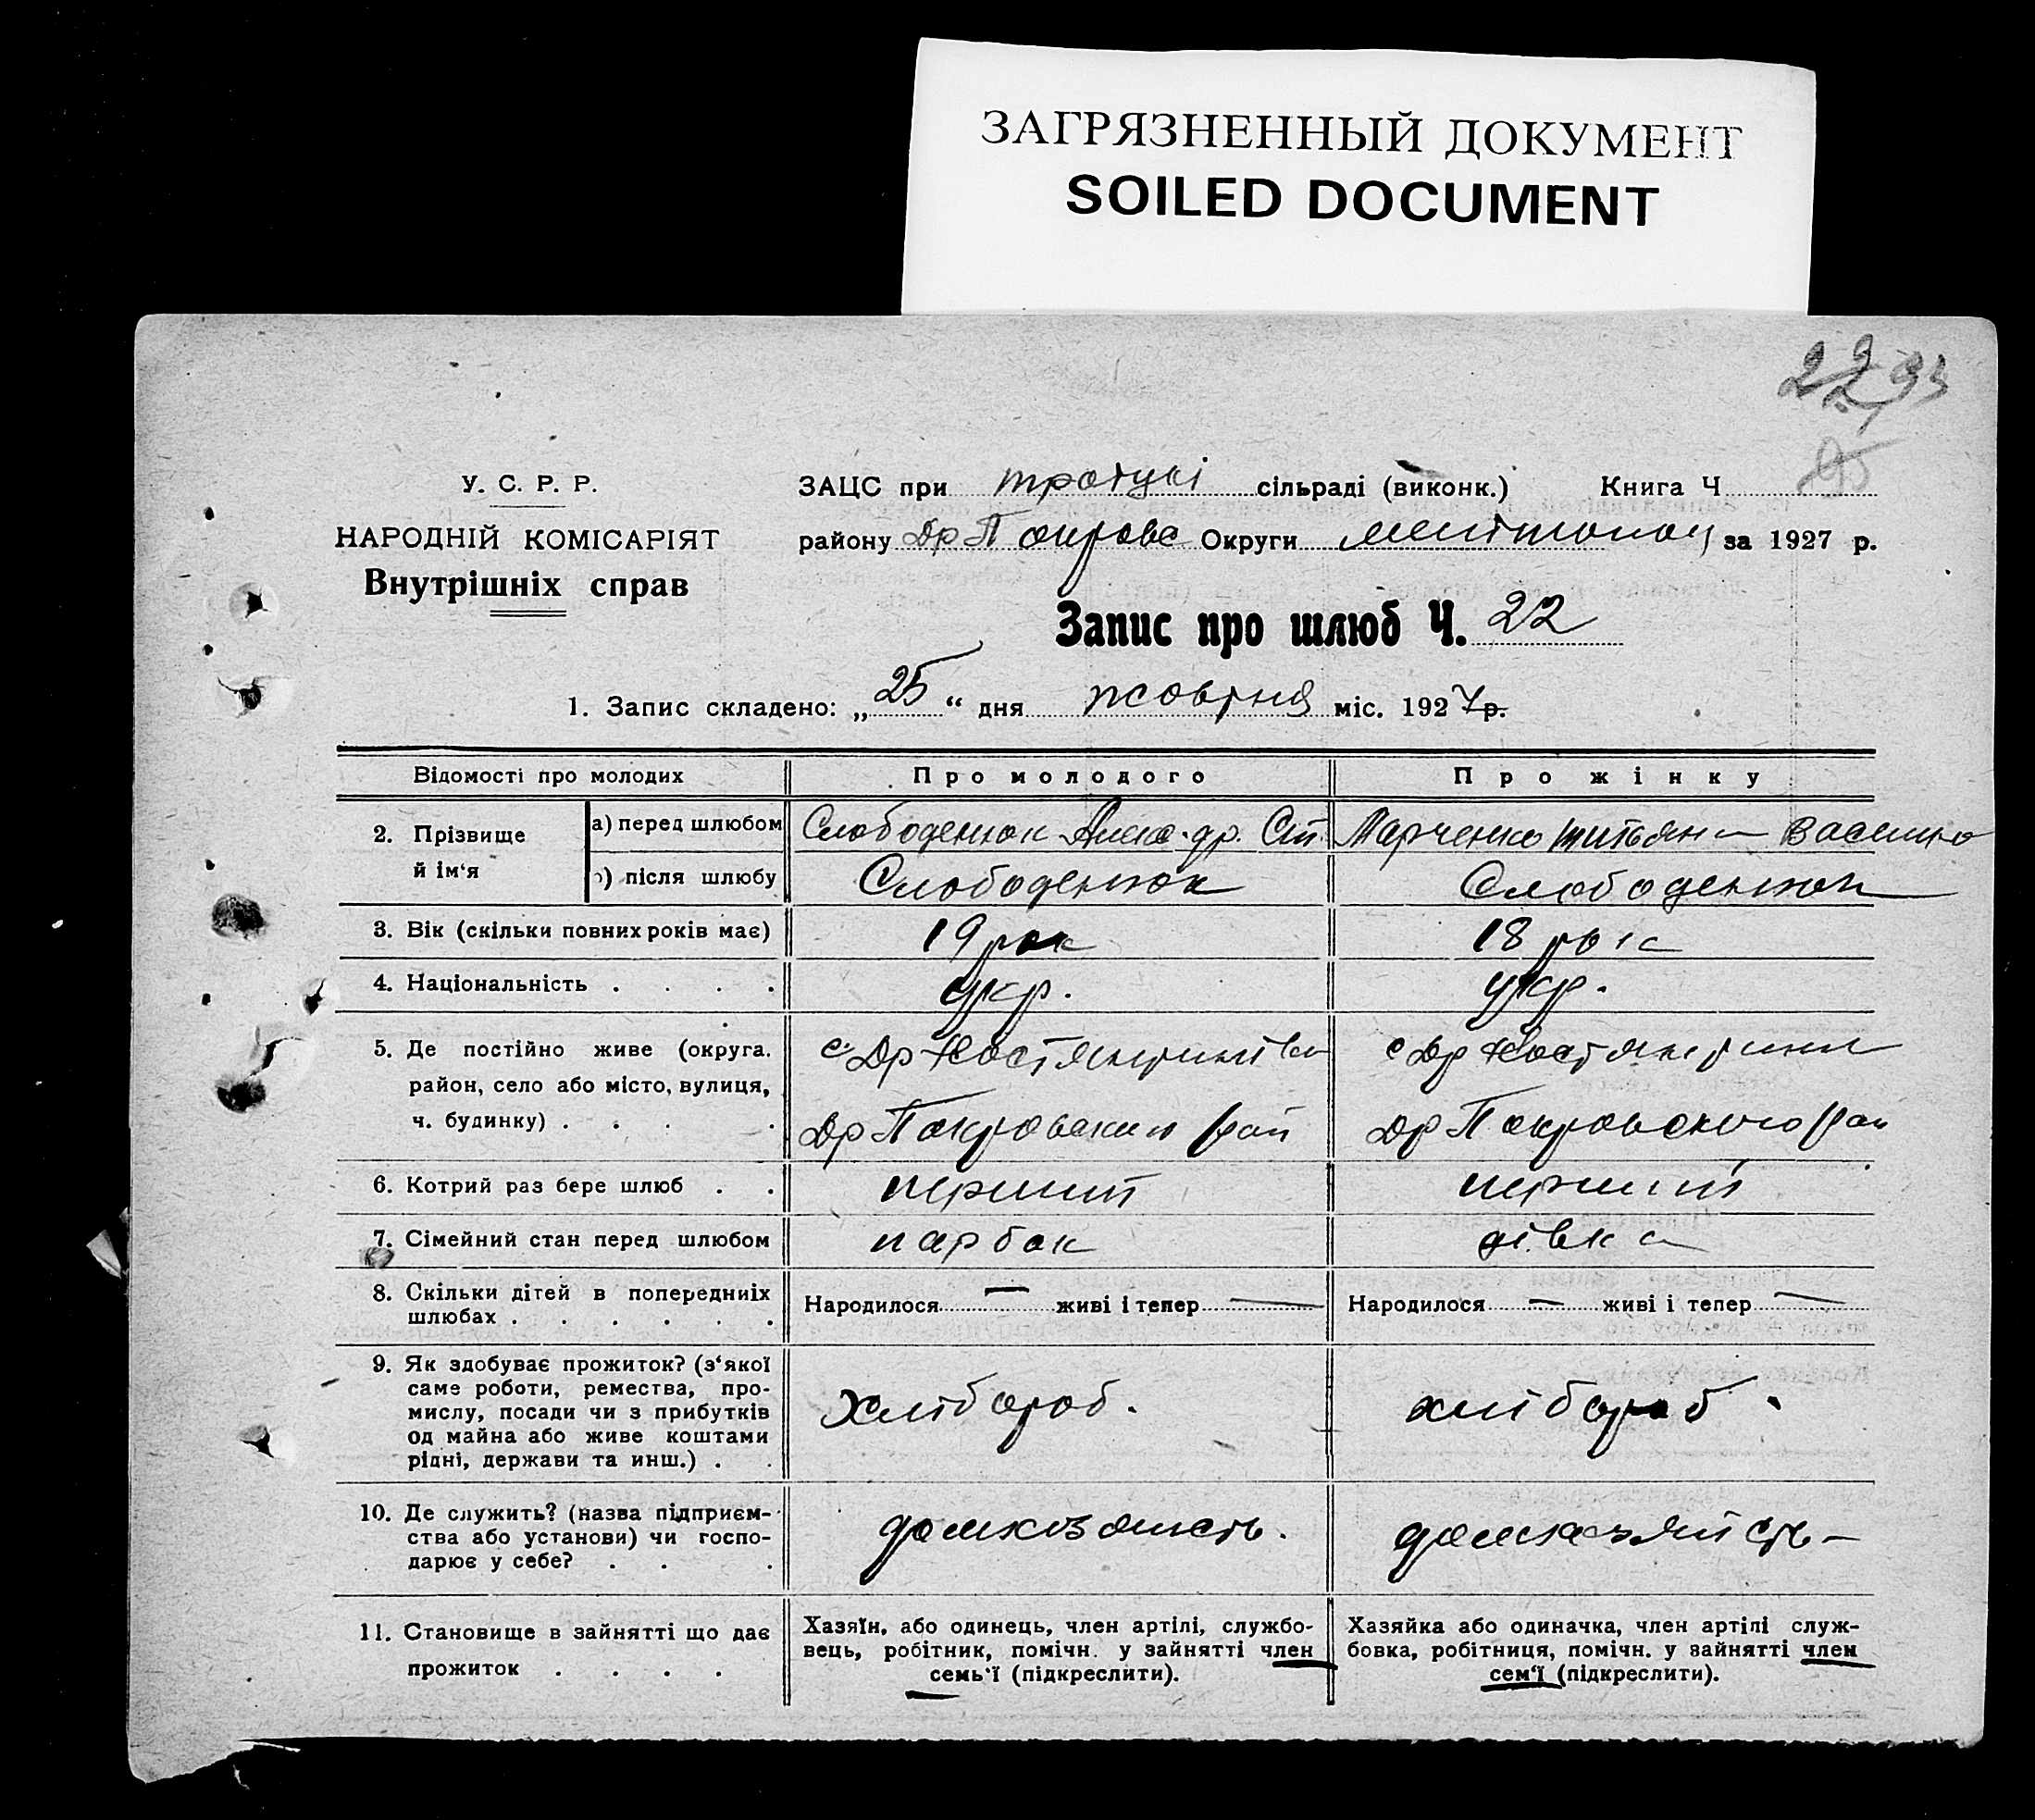 ЗАГРЯЗНЕННЫЙ ДОКУМЕНТ
SOILED DOCUMENT
93
У. С. Р. Р.
НАРОДНІЙ КОМІСАРІЯТ
Внутрішніх справ
ЗАЦС при сільраді (виконк.) Книга Ч
району Др Покровс Округи за 1927 р.
Запис про шлюб Ч. 22
1. Запис складено: „25“ дня жовтня міс. 1927 р.
Відомості про молодих Про молодого Про жінку
2. Прізвище й ім‘я
а) перед шлюбом Слободенюк Алекс.др. Ст Марченко Васильо
після шлюбу Слободенюк Слободенюк
3. Вік (скільки повних років має) 19 рок 18 рок
4. Національність . . . . укр. укр.
5. Де постійно живе (округа. с. Др
район, село або місто, вулиця,
ч. будинку) . . . . Др Покровского рай Др Покровского рай
6. Котрий раз бере шлюб . . перший перший
7. Сімейний стан перед шлюбом парбок дівка
8. Скільки дітей в попередниіх Народилося — живі і тепер — Народилося — живі і тепер —
шлюбах . . . . . .
9. Як здобуває прожиток? (з‘якої
саме роботи, ремества, про-
мислу, посади чи з прибутків хлібороб. хлібороб.
од майна або живе коштами
рідні, держави та инш.) . .
10. Де служить? (назва підприєм-
ства або установи) чи госпо-
дарює у себе? . . .
11. Становище в зайнятті що дає
прожиток . . . .
Хазяїн, або одинець, член артілі, службо-
вець, робітник, помічн. у зайнятті член
семь‘ї (підкреслити).
Хазяйка або одиначка, член артілі служ-
бовка, робітниця, помічн. у зайнятті член
сем‘ї (підкреслити).